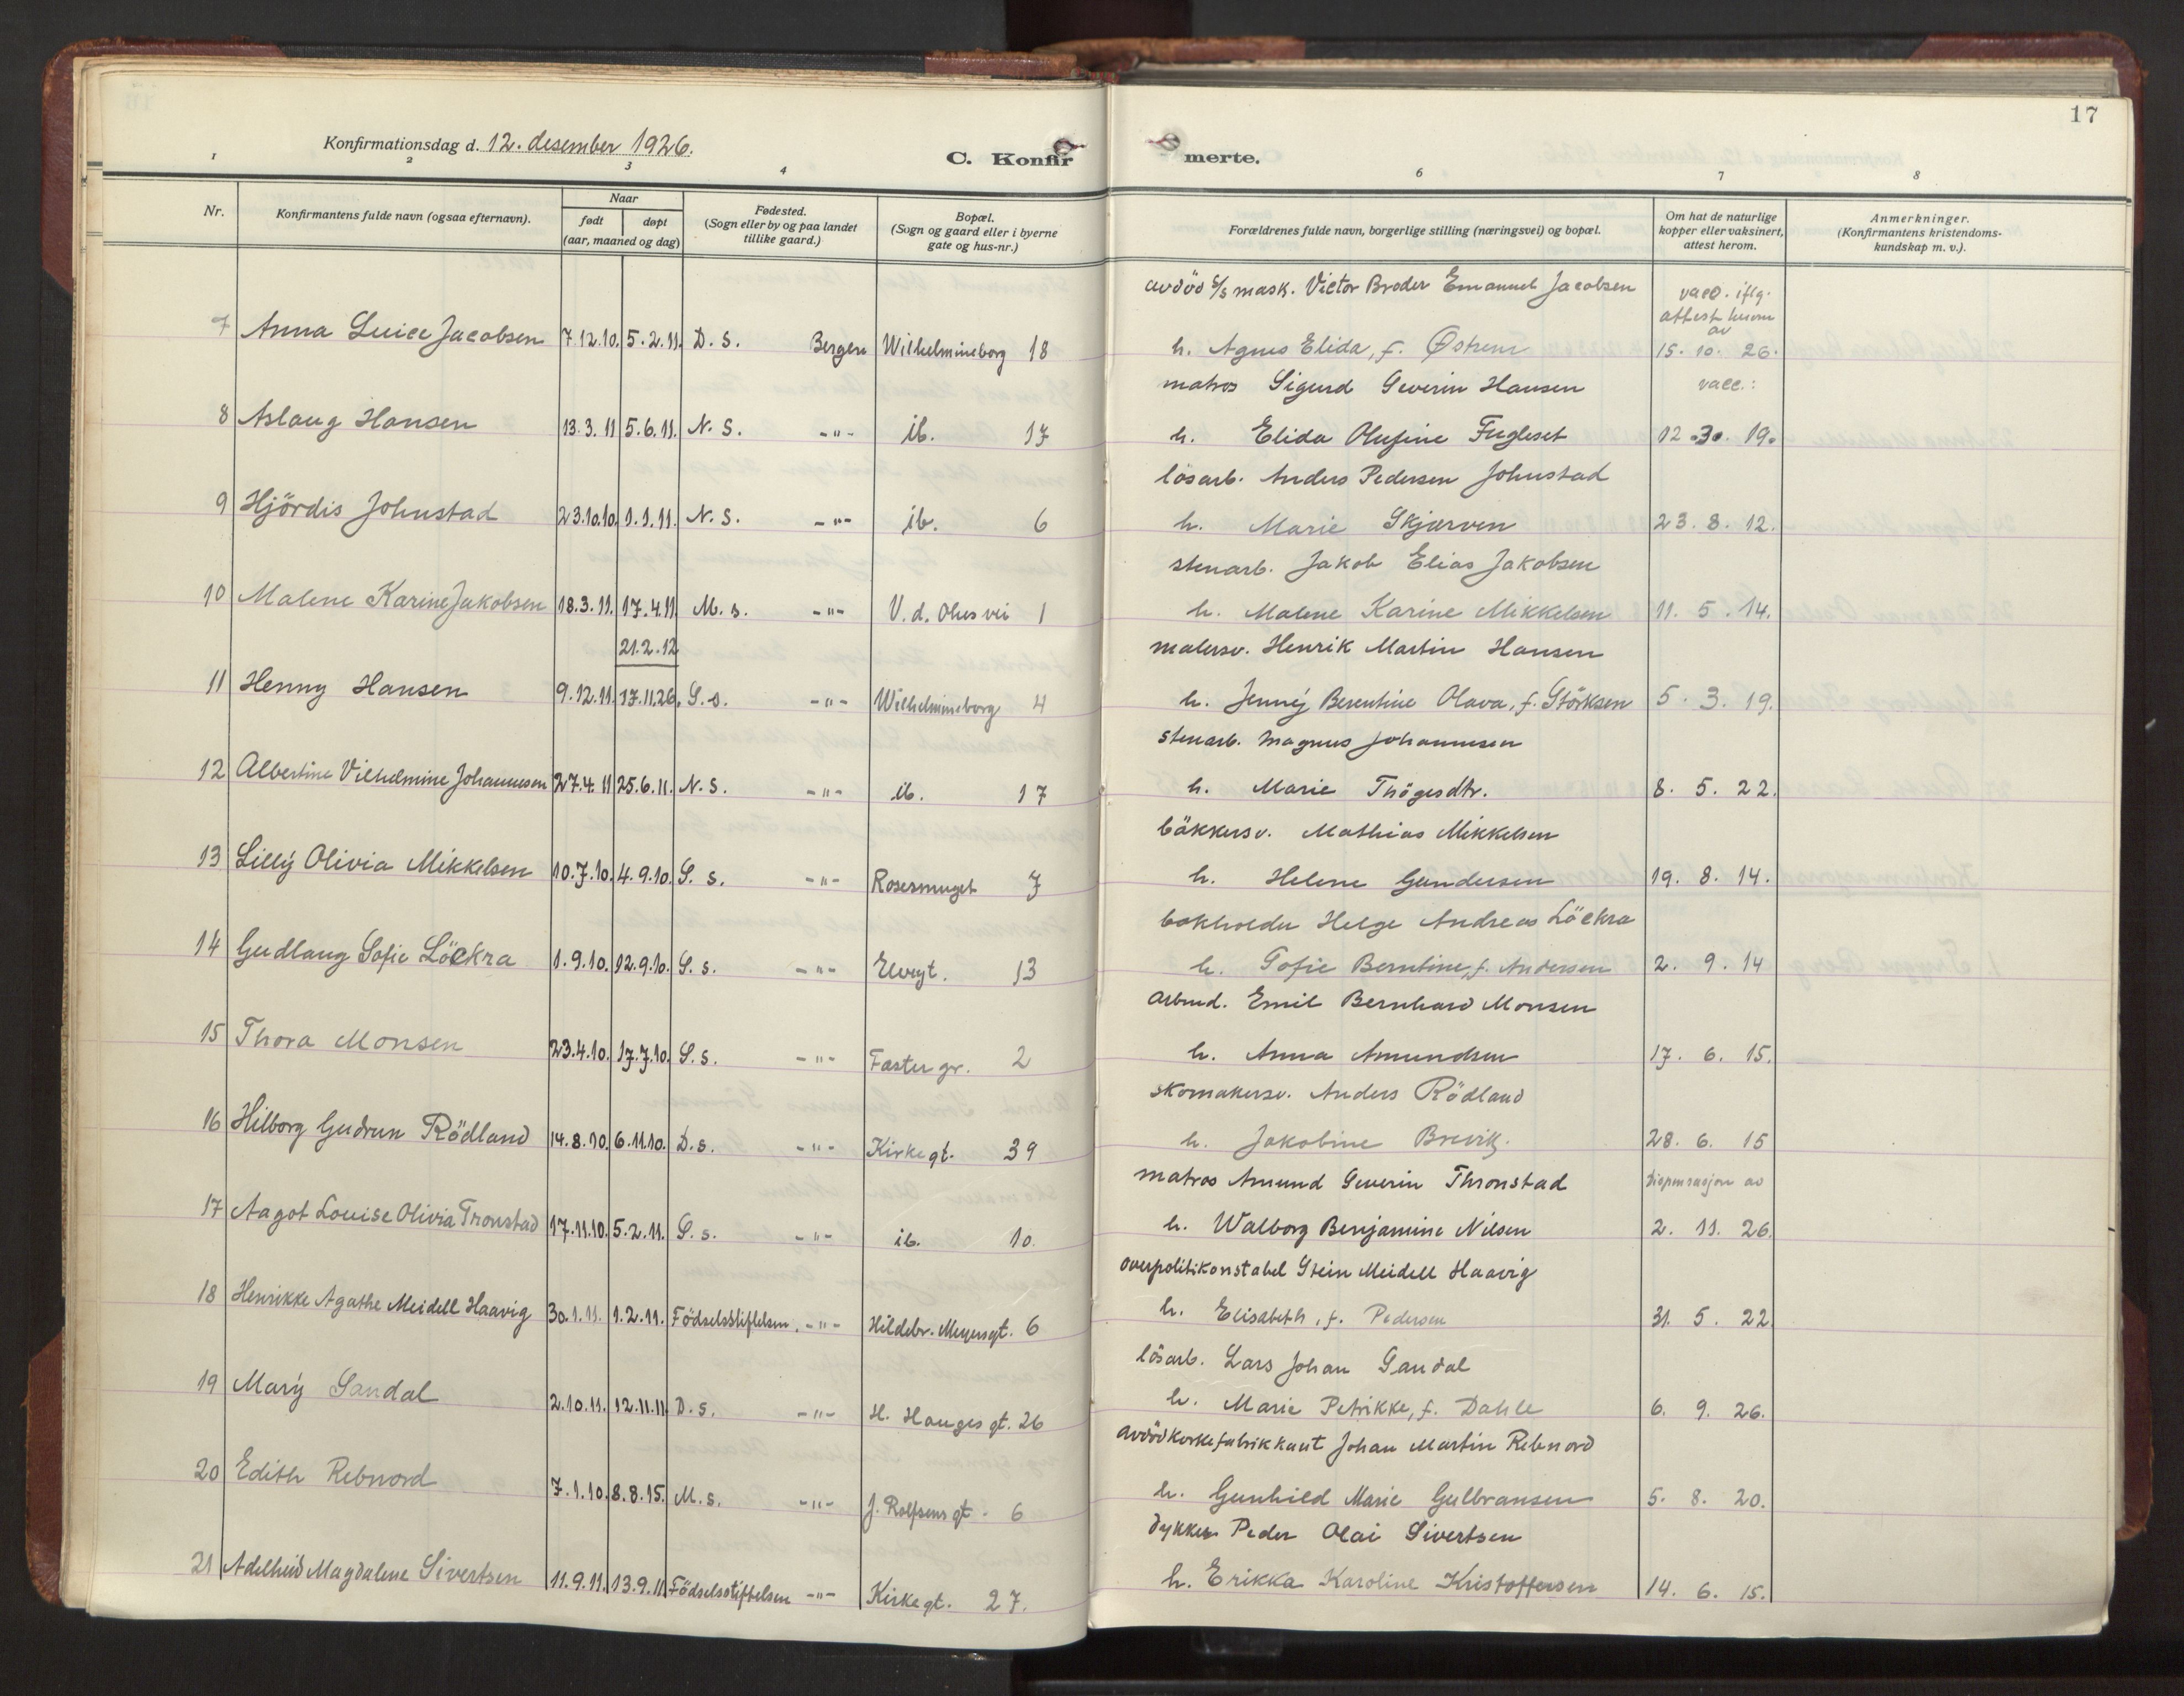 17
Konfirmationsdag d. 12. desember 1926.
C. Konfir merte.
1 2 3 4 6 7 8
Nr.
Konfirmantens fulde navn (ogsaa efternavn).
Naar
født døpt
(aar, maaned og dag)
Fødested.
(Sogn eller by og paa landet
tillike gaard.)
Bopæl.
(Sogn og gaard eller i byerne
gate og hus-nr.)
Forældrenes fulde navn, borgerlige stilling (næringsvei) og bopæl.
Om hat de naturlige
kopper eller vaksinert,
attest herom.
Anmerkninger.
(Konfirmantens kristendoms-
kundskap m. v.).
avdöd s/s mask. Victor Broder Emanuel Jacobsen vacc. iflg.
attest herom
av
7 Anna Luice Jacobsen 7.12.10. 5.2.11. D. S. Bergen Wilhelmineborg 18 h. Agnes Elida, f. Østrem 15. 10. 26.
matros Sigurd Severin Hansen vacc.:
8 Aslaug Hansen 13.3.11 5.6.11. N. S. -"- ib. 17 h. Elida Olufine Fugleset 12. 3. 19.
lösarb. Anders Pedersen Johnstad
9 Hjördis Johnstad 23.10.10. 1.1.11. N. S. -"- ib. 6 h. Marie Skjærven 23. 8. 12.
stenarb. Jakob Elias Jakobsen
10 Malene Karine Jakobsen 18.3.11. 17.4.11 M. s. -"- V. d. Ohes vei 1 h. Malene Karine Mikkelsen 11. 5. 14.
21.2.12 malersv. Henrik Martin Hansen
11 Henny Hansen 9.12.11. 17.11.26. S. s. -"- Wilhelmineborg 4 h. Jenny Berentine Olava, f. Störksen 5. 3. 19.
stenarb. Magnus Johannesen
12 Albertine Vilhelmine Johannesen 27.4.11 25.6.11. N. S. -"- ib. 17 h. Marie Thögesdtr. 8. 5. 22.
bäkkersv. Mathias Mikkelsen
13 Lilly Olivia Mikkelsen 10.7.10. 4.9.10. S. s. -"- Rosesmuget 7 h. Helene Gundersen 19. 8. 14.
bokholder Helge Andreas Löckra
14 Gudlaug Sofie Löckra 1.9.10. 12.9.10. S. s. -"- Elvegt. 13 h. Sofie Berntine, f. Andersen 2. 9. 14
arbmd. Emil Bernhard Monsen
15 Thora Monsen 23.4.10. 17.7.10. S. s. -"- Faster gr. 2 h. Anna Amundsen 17. 6. 15.
skomakersv. Anders Rödland
16 Hilborg Gudrun Rödland 14.8.10. 6.11.10. D. s. -"- Kirkegt. 39 h. Jakobine Brevik. 28. 6. 15
matros Amund Severin Thronstad Dispensasjon av
17 Aagot Louise Olivia Tronstad 17.11.10. 5.2.11. S. s. -"- ib. 10. h. Walborg Benjamine Nilsen 2. 11. 26.
overpolitikonstabel Stein Meidell Haavig
18 Henrikke Agathe Meidell Haavig 30.1.11. 1.2.11. Födselsstiftelsen. -"- Hildebr. Meyersgt. 6 h. Elisabeth, f. Pedersen 31. 5. 22
lösarb. Lars Johan Sandal
19 Mary Sandal 2.10.11. 12.11.11 D. s. -"- H. Hauges gt. 26 h. Marie Petrikke, f. Dahle 6. 9. 26.
avdöd korkefabrikkant Johan Martin Rebnord
20 Edith Rebnord 7.1.10. 8.8.15. M. s. -"- J. Rolfsens gt. 6 h. Gunhild Marie Gulbransen 5. 8. 20.
dykker Peder Olai Sivertsen
21 Adelheid Magdalene Sivertsen 11.9.11. 13.9.11. Födselsstiftelsen -"- Kirkegt. 27. h. Erikka Karoline Kristoffersen 14. 6. 15.